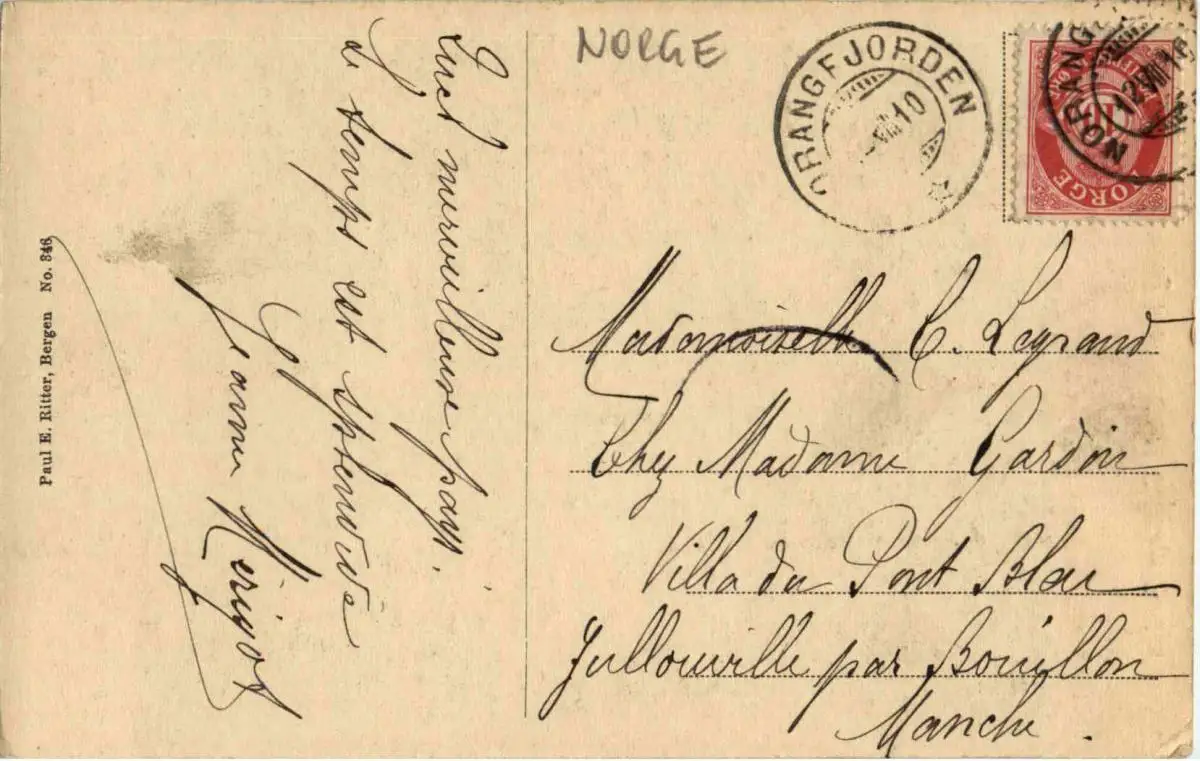 NORGE
ORANGFJORDEN
VIII 10
NORANG
12 VIII 10
NORGE
Quel merveilleux pays.
Le temps est splendide
Jeanne Mérigot
Paul E. Ritter, Bergen No. 346
Mademoiselle C. Legrand
Chez Madame Gardin
Villa du Pont Blae
Jullouville par Bouillon
Manche.